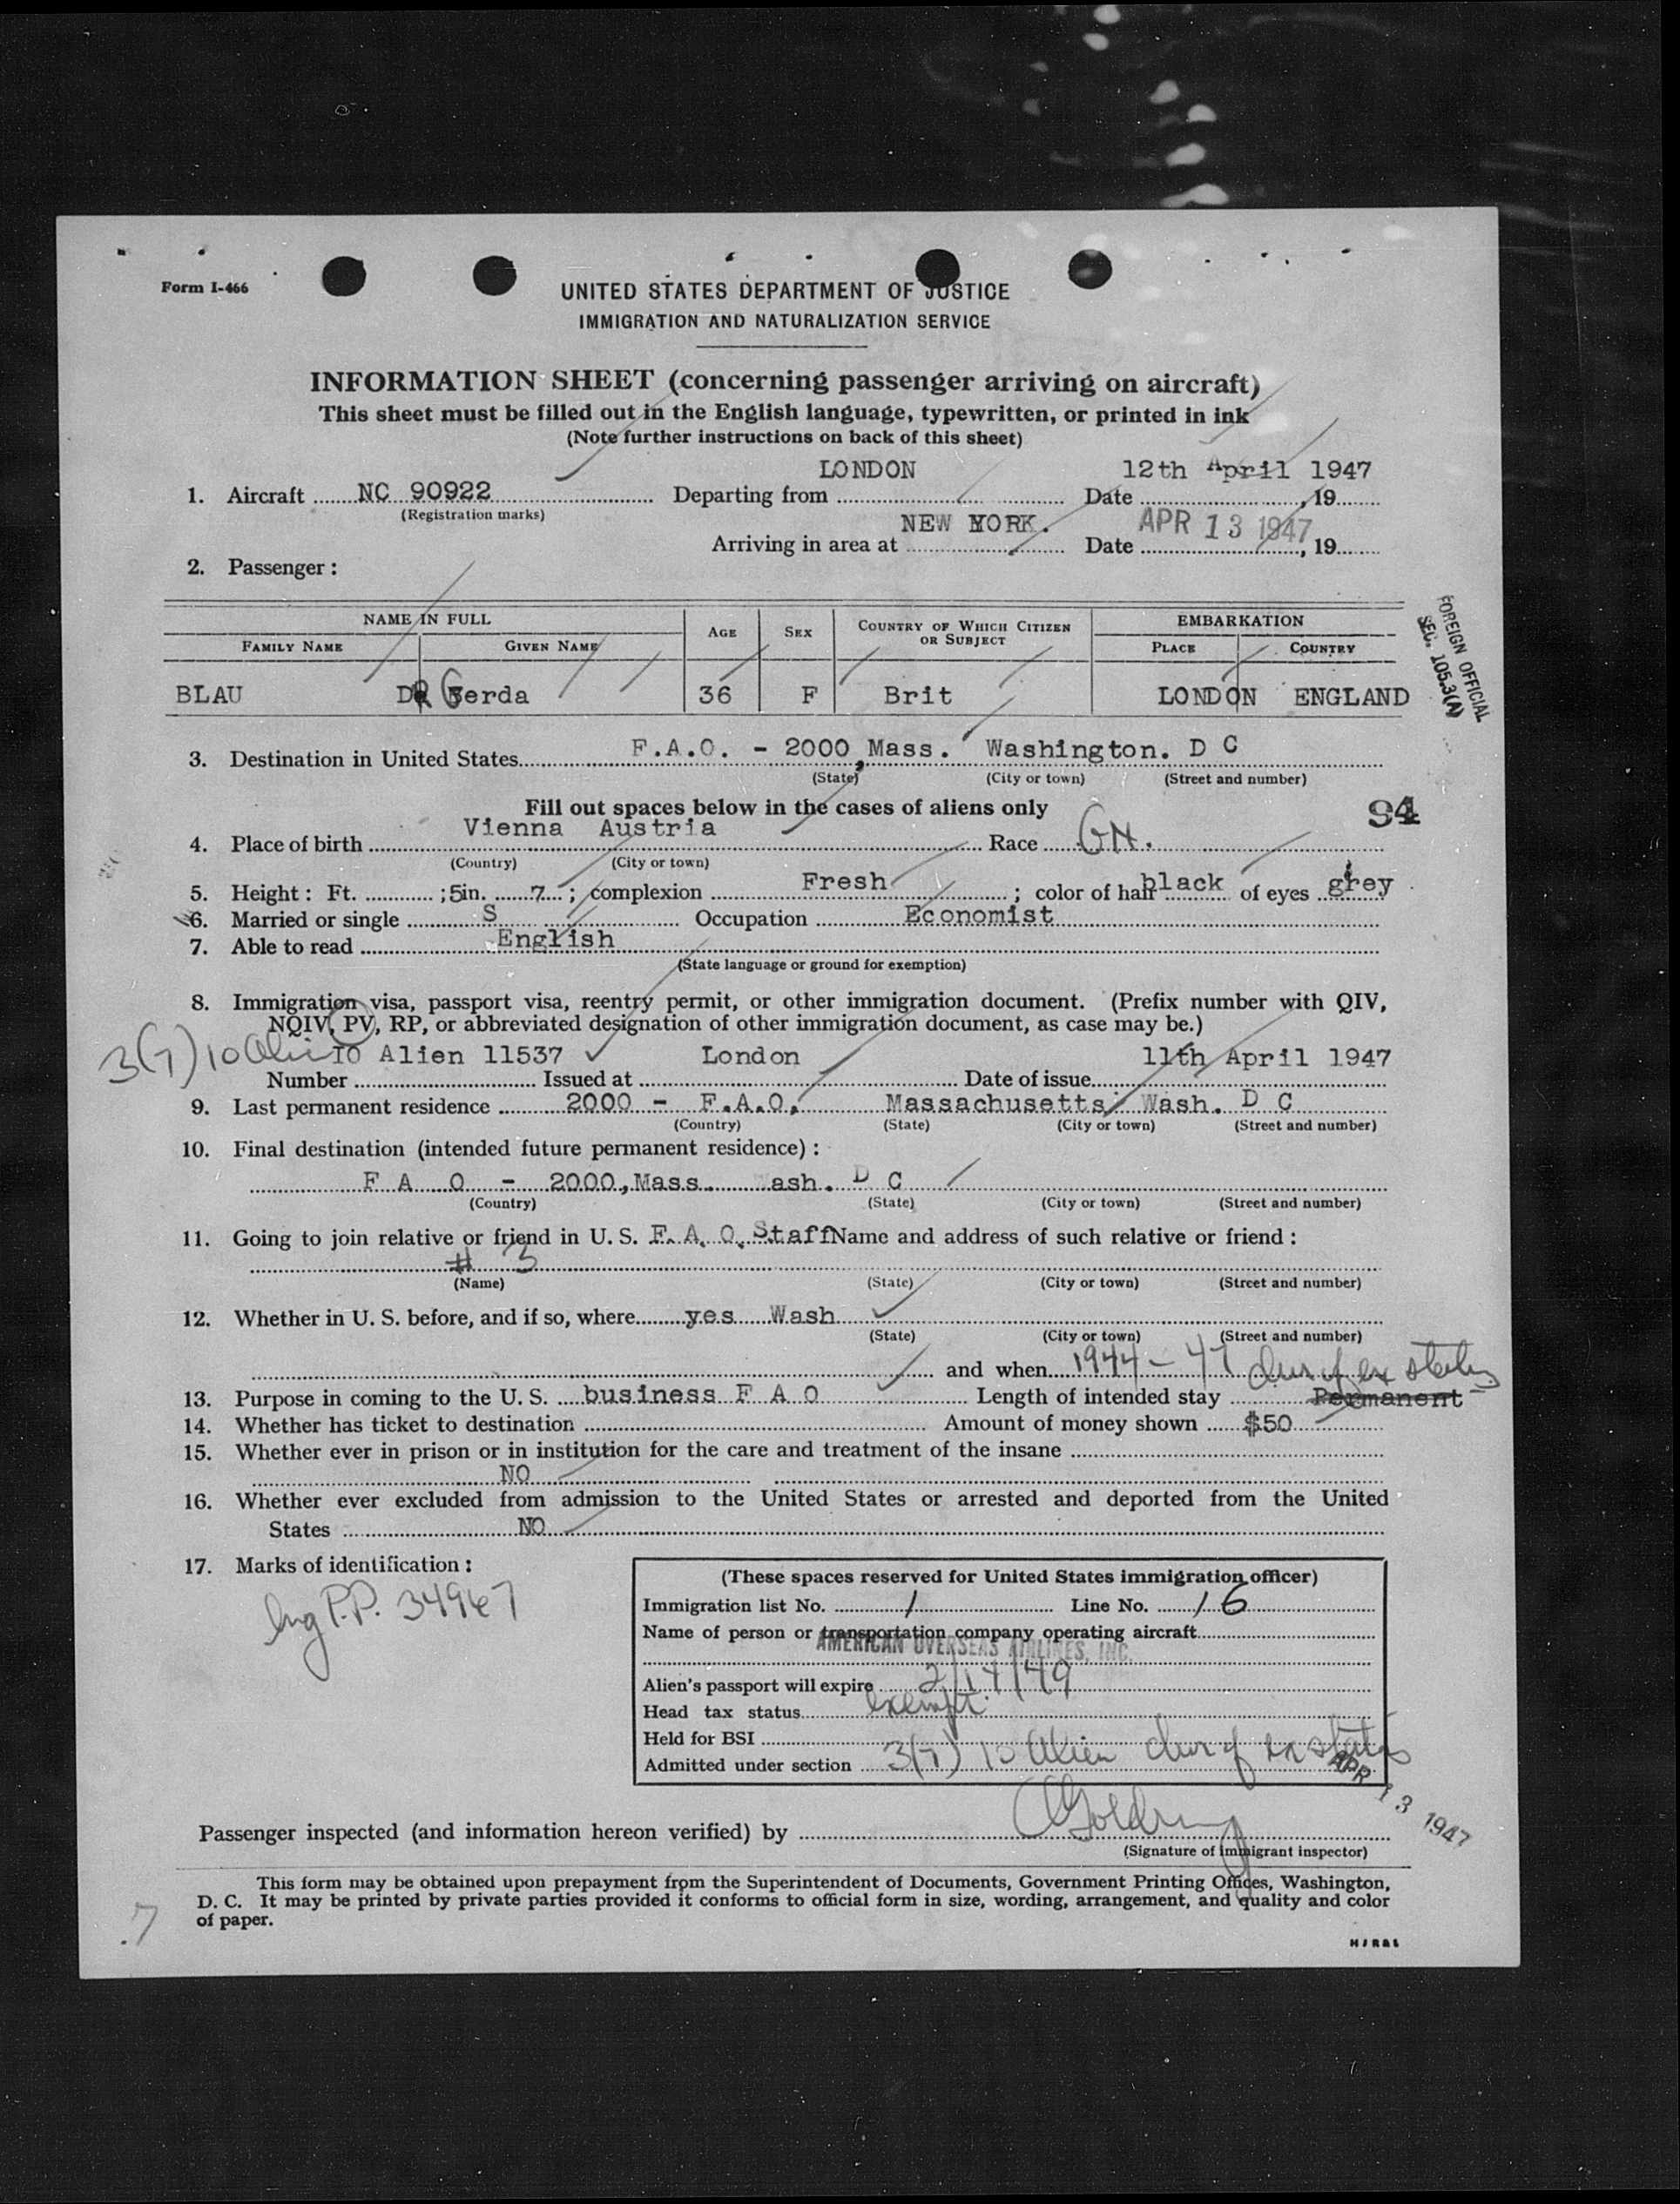 Form I-466
UNITED STATES DEPARTMENT OF JUSTICE
IMMIGRATION AND NATURALIZATION SERVICE
INFORMATION SHEET (concerning passenger arriving on aircraft)
This sheet must be filled out in the English language, typewritten, or printed in ink
(Note further instructions on back of this sheet)
LONDON 12th April 1947
1. Aircraft NC 90922 Departing from Date , 19
(Registration marks)
NEW YORK. APR 13 1947
Arriving in area at Date , 19
2. Passenger:
FOREIGN OFFICIAL
SEC. 105.3(A)
NAME IN FULL AGE SEX COUNTRY OF WHICH CITIZEN OR SUBJECT EMBARKATION
FAMILY NAME GIVEN NAME PLACE COUNTRY
BLAU DR Gerda 36 F Brit LONDON ENGLAND
3. Destination in United States F.A.O. - 2000, Mass. Washington. D C
(State) (City or town) (Street and number)
Fill out spaces below in the cases of aliens only 94
Vienna Austria
4. Place of birth Race GN.
(Country) (City or town)
5. Height: Ft. ; 5in. 7 ; complexion Fresh ; color of hair black of eyes grey
6. Married or single S Occupation Economist
7. Able to read English
(State language or ground for exemption)
8. Immigration visa, passport visa, reentry permit, or other immigration document. (Prefix number with QIV,
NQIV, PV, RP, or abbreviated designation of other immigration document, as case may be.)
3(7) 10 Alien IO Alien 11537 London 11th April 1947
Number Issued at Date of issue
9. Last permanent residence 2000 - F.A.O. Massachusetts Wash. D C
(Country) (State) (City or town) (Street and number)
10. Final destination (intended future permanent residence):
F A O - 2000, Mass. ash. D C
(Country) (State) (City or town) (Street and number)
11. Going to join relative or friend in U. S. F. A. O. Staff Name and address of such relative or friend:
# 3
(Name) (State) (City or town) (Street and number)
12. Whether in U. S. before, and if so, where yes Wash
(State) (City or town) (Street and number)
and when 1944 - 47 dur of ex status
13. Purpose in coming to the U. S. business F A O Length of intended stay Permanent
14. Whether has ticket to destination Amount of money shown $50
15. Whether ever in prison or in institution for the care and treatment of the insane
NO
16. Whether ever excluded from admission to the United States or arrested and deported from the United
States NO
17. Marks of identification:
P.P. 34967
(These spaces reserved for United States immigration officer)
Immigration list No. 1 Line No. 16
Name of person or transportation company operating aircraft
AMERICAN OVERSEAS AIRLINES, INC.
Alien's passport will expire 2/14/49
Head tax status exempt.
Held for BSI
Admitted under section 3(7) 10 Alien dur of ex status
APR 13 1947
Passenger inspected (and information hereon verified) by
(Signature of immigrant inspector)
This form may be obtained upon prepayment from the Superintendent of Documents, Government Printing Offices, Washington,
D. C. It may be printed by private parties provided it conforms to official form in size, wording, arrangement, and quality and color
of paper.
7